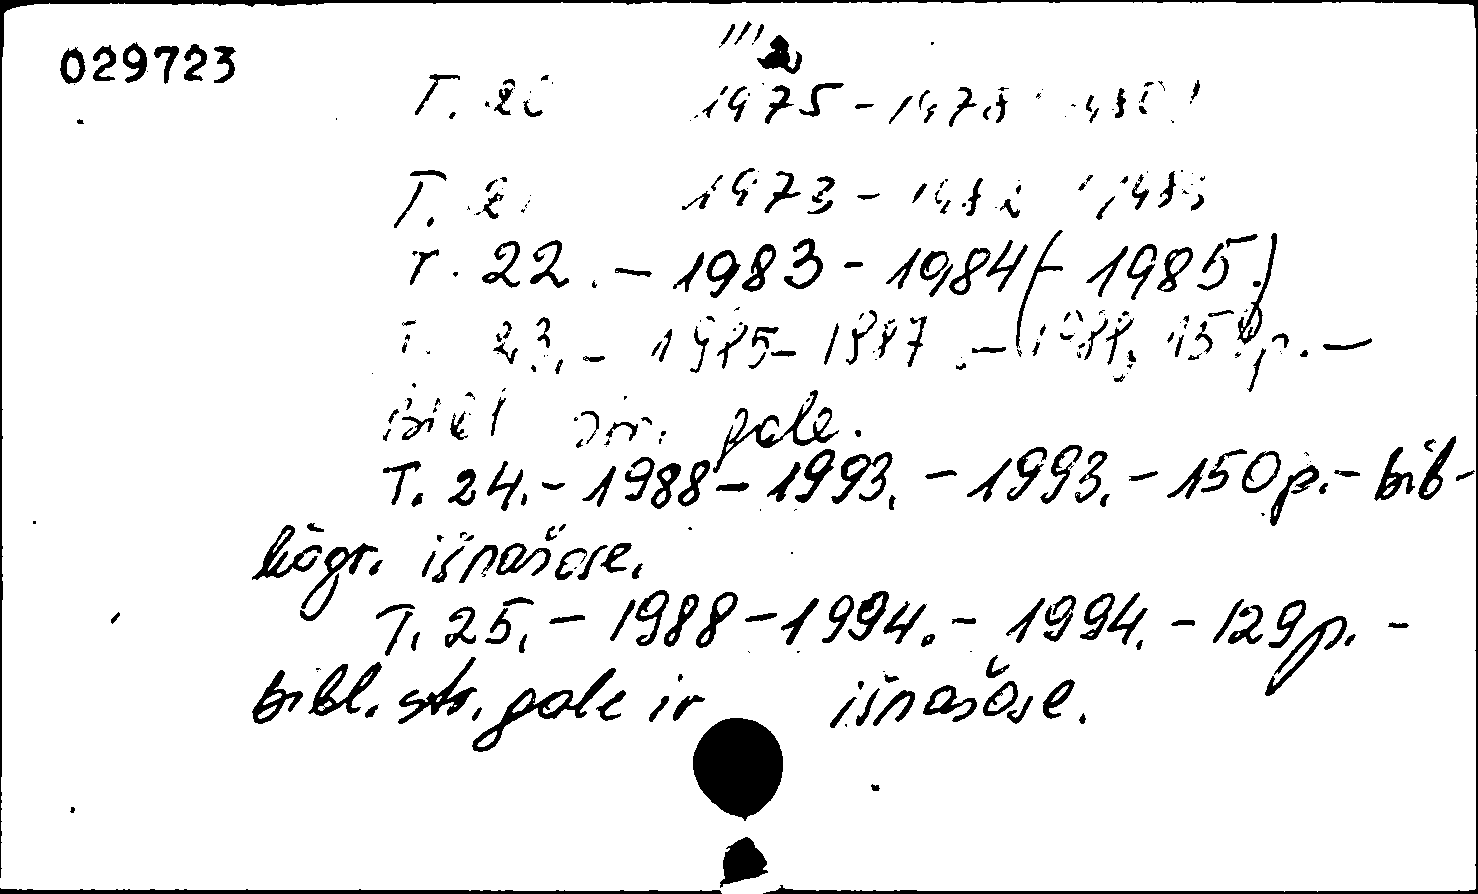 029723
T. 20 1975 - 1978
T. 1973 -
T. 22. - 1983 - 1984 (- 1985.)
T. 23. - 1985 - 1987. - (1988, 15 p. -
Bibl str. gale.
T. 24. - 1988 - 1993. - 1993. - 150 p. - bib-
liogr. išnašose.
T. 25. - 1988 - 1994. - 1994. - 129 p. -
bibl. str. gale ir išnašose.